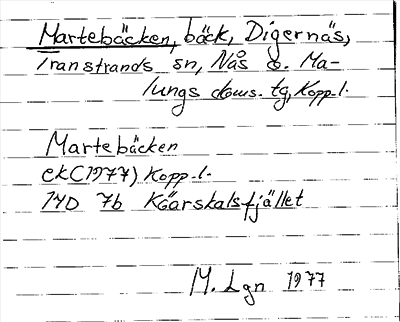 Martebäcken, bäck, Digernäs,
Transtrands sn, Nås o. Ma-
lungs doms. tg, Kopp. l.
Martebäcken
ek(1977) Kopp. l.
14D 7b Köarskalsfjället
M. Lgn 1977